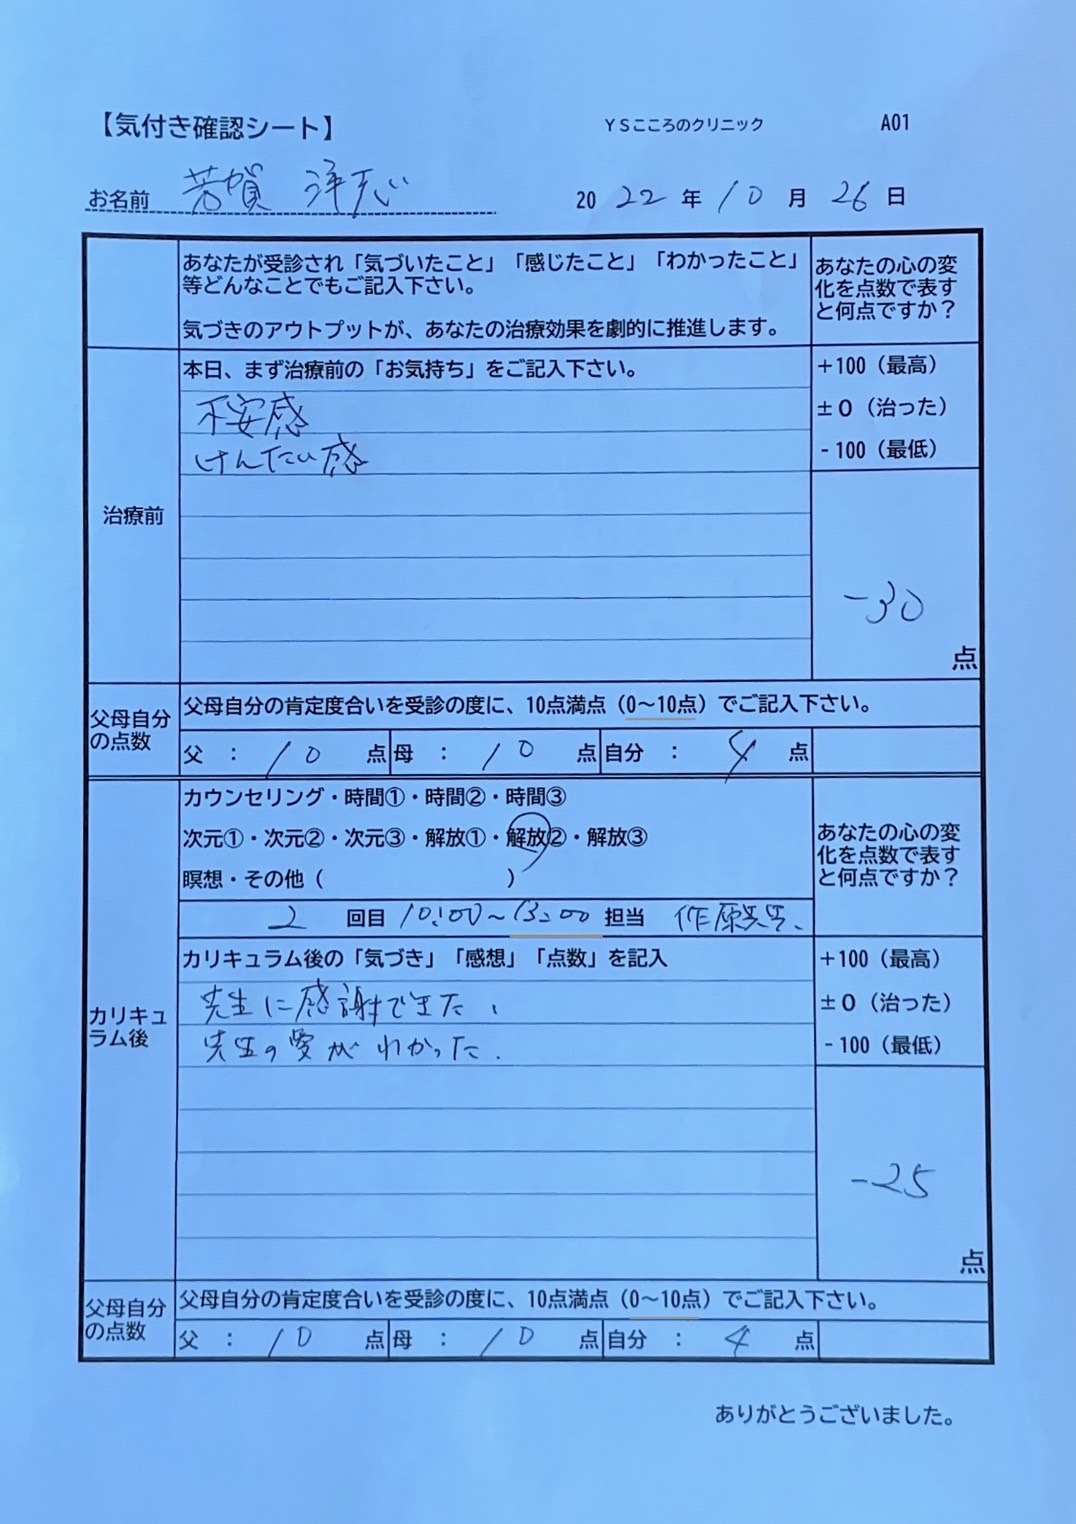 【気付き確認シート】 YSこころのクリニック A01
お名前 芳賀 洋志 2022年10月26日
あなたが受診され「気づいたこと」「感じたこと」「わかったこと」
等どんなことでもご記入下さい。
気づきのアウトプットが、あなたの治療効果を劇的に推進します。
あなたの心の変
化を点数で表す
と何点ですか？
治療前
本日、まず治療前の「お気持ち」をご記入下さい。
不安感
けんたい感
+100（最高）
±0（治った）
-100（最低）
-30
点
父母自分
の点数
父母自分の肯定度合いを受診の度に、10点満点（0〜10点）でご記入下さい。
父：10点 母：10点 自分：4点
カウンセリング・時間①・時間②・時間③
次元①・次元②・次元③・解放①・解放②・解放③
瞑想・その他（ ）
あなたの心の変
化を点数で表す
と何点ですか？
2回目 10:00〜13:00 担当 作原先生、
カリキュ
ラム後
カリキュラム後の「気づき」「感想」「点数」を記入
先生に感謝できた、
先生の愛がわかった.
+100（最高）
±0（治った）
-100（最低）
-25
点
父母自分
の点数
父母自分の肯定度合いを受診の度に、10点満点（0〜10点）でご記入下さい。
父：10点 母：10点 自分：4点
ありがとうございました。